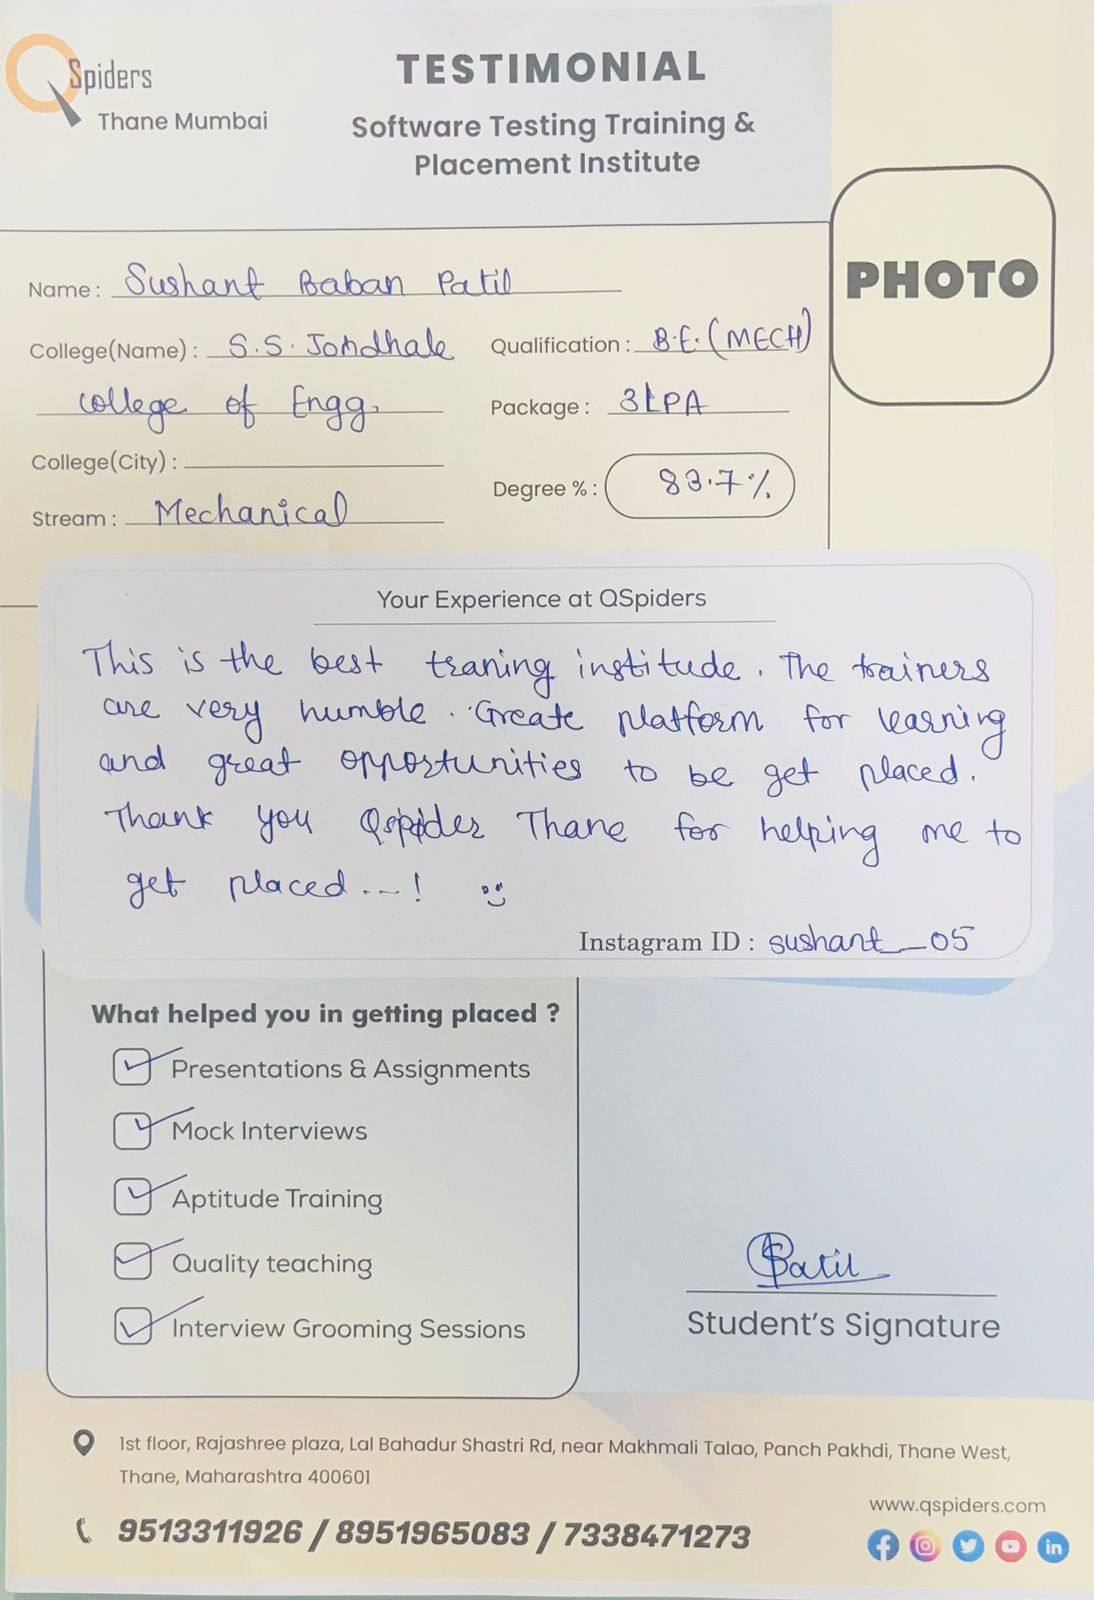 QSpiders
Thane Mumbai
TESTIMONIAL
Software Testing Training &
Placement Institute
PHOTO
Name : Sushant Baban Patil
College(Name) : S.S. Jondhale
college of Engg.
Qualification : B.E. (MECH)
Package : 3LPA
College(City) :
Degree % : 83.7%
Stream : Mechanical
Your Experience at QSpiders
This is the best traning institude. The trainers
are very humble. Greate platform for learning
and great opportunities to be get placed.
Thank you Qspider Thane for helping me to
get placed...!
Instagram ID : sushant_05
What helped you in getting placed ?
Presentations & Assignments
Mock Interviews
Aptitude Training
Quality teaching
Interview Grooming Sessions
SPatil
Student's Signature
1st floor, Rajashree plaza, Lal Bahadur Shastri Rd, near Makhmali Talao, Panch Pakhdi, Thane West,
Thane, Maharashtra 400601
9513311926 / 8951965083 / 7338471273
www.qspiders.com